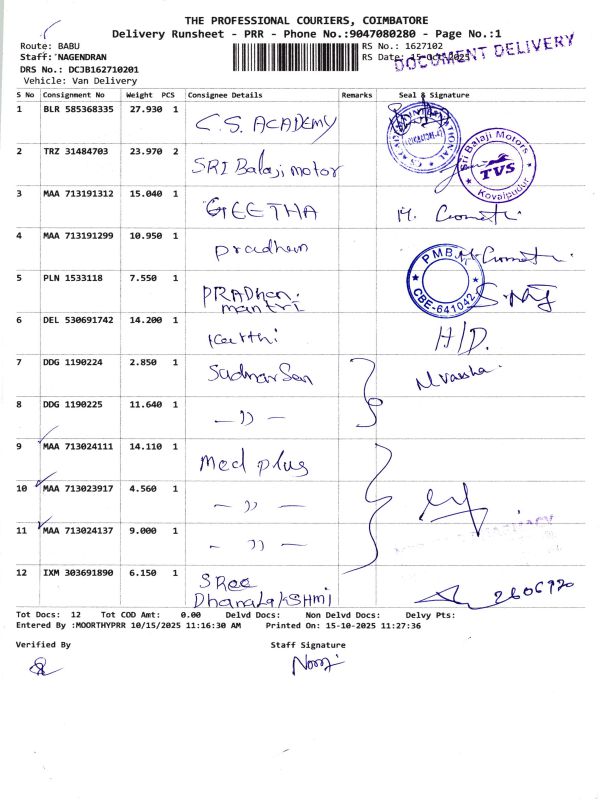 THE PROFESSIONAL COURIERS, COIMBATORE
Delivery Runsheet - PRR - Phone No.:9047080280 - Page No.:1
Route: BABU RS No.: 1627102
Staff: NAGENDRAN RS Date: 15-Oct-2025
DOCUMENT DELIVERY
DRS No.: DCJB162710201
Vehicle: Van Delivery
S No Consignment No Weight PCS Consignee Details Remarks Seal & Signature
1 BLR 585368335 27.930 1 C.S. ACADEMY
2 TRZ 31484703 23.970 2 SRI Balaji motor
Sri Balaji Motors
TVS
Kovaipudur
3 MAA 713191312 15.040 1 GEETHA
4 MAA 713191299 10.950 1 Pradhem
5 PLN 1533118 7.550 1 PRADhan.
mantri
PMB
CBE-641042
6 DEL 530691742 14.200 1 Karthi H/D.
7 DDG 1190224 2.850 1 SudharSan
8 DDG 1190225 11.640 1 — )) —
9 MAA 713024111 14.110 1 Med plus
10 MAA 713023917 4.560 1 — )) —
11 MAA 713024137 9.000 1 — )) —
12 IXM 303691890 6.150 1 SRee
DhanaLakSHmi
Tot Docs: 12 Tot COD Amt: 0.00 Delvd Docs: Non Delvd Docs: Delvy Pts:
Entered By :MOORTHYPRR 10/15/2025 11:16:30 AM Printed On: 15-10-2025 11:27:36
Verified By Staff Signature